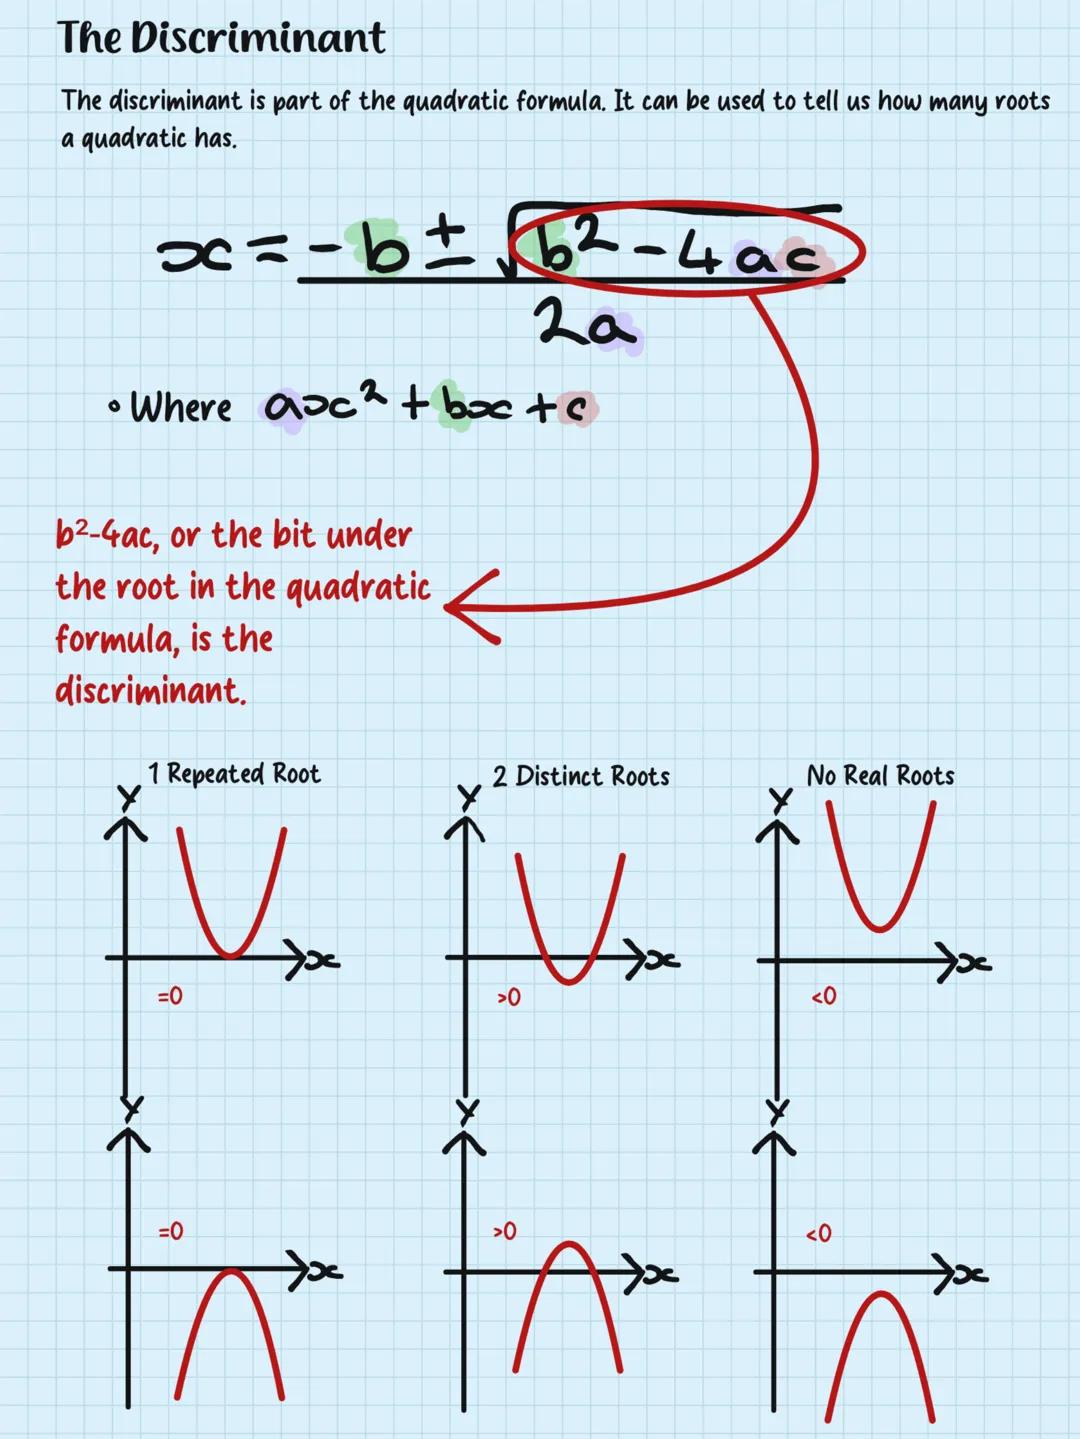 The Discriminant
The discriminant is part of the quadratic formula. It can be used to tell us how many roots
a quadratic has.
x = -b ± √b² - 4ac
2a
• Where ax² + bx + c
b²-4ac, or the bit under
the root in the quadratic
formula, is the
discriminant.
1 Repeated Root
2 Distinct Roots
No Real Roots
Y
Y
Y
x
x
x
=0
>0
<0
Y
Y
Y
=0
>0
<0
x
x
x